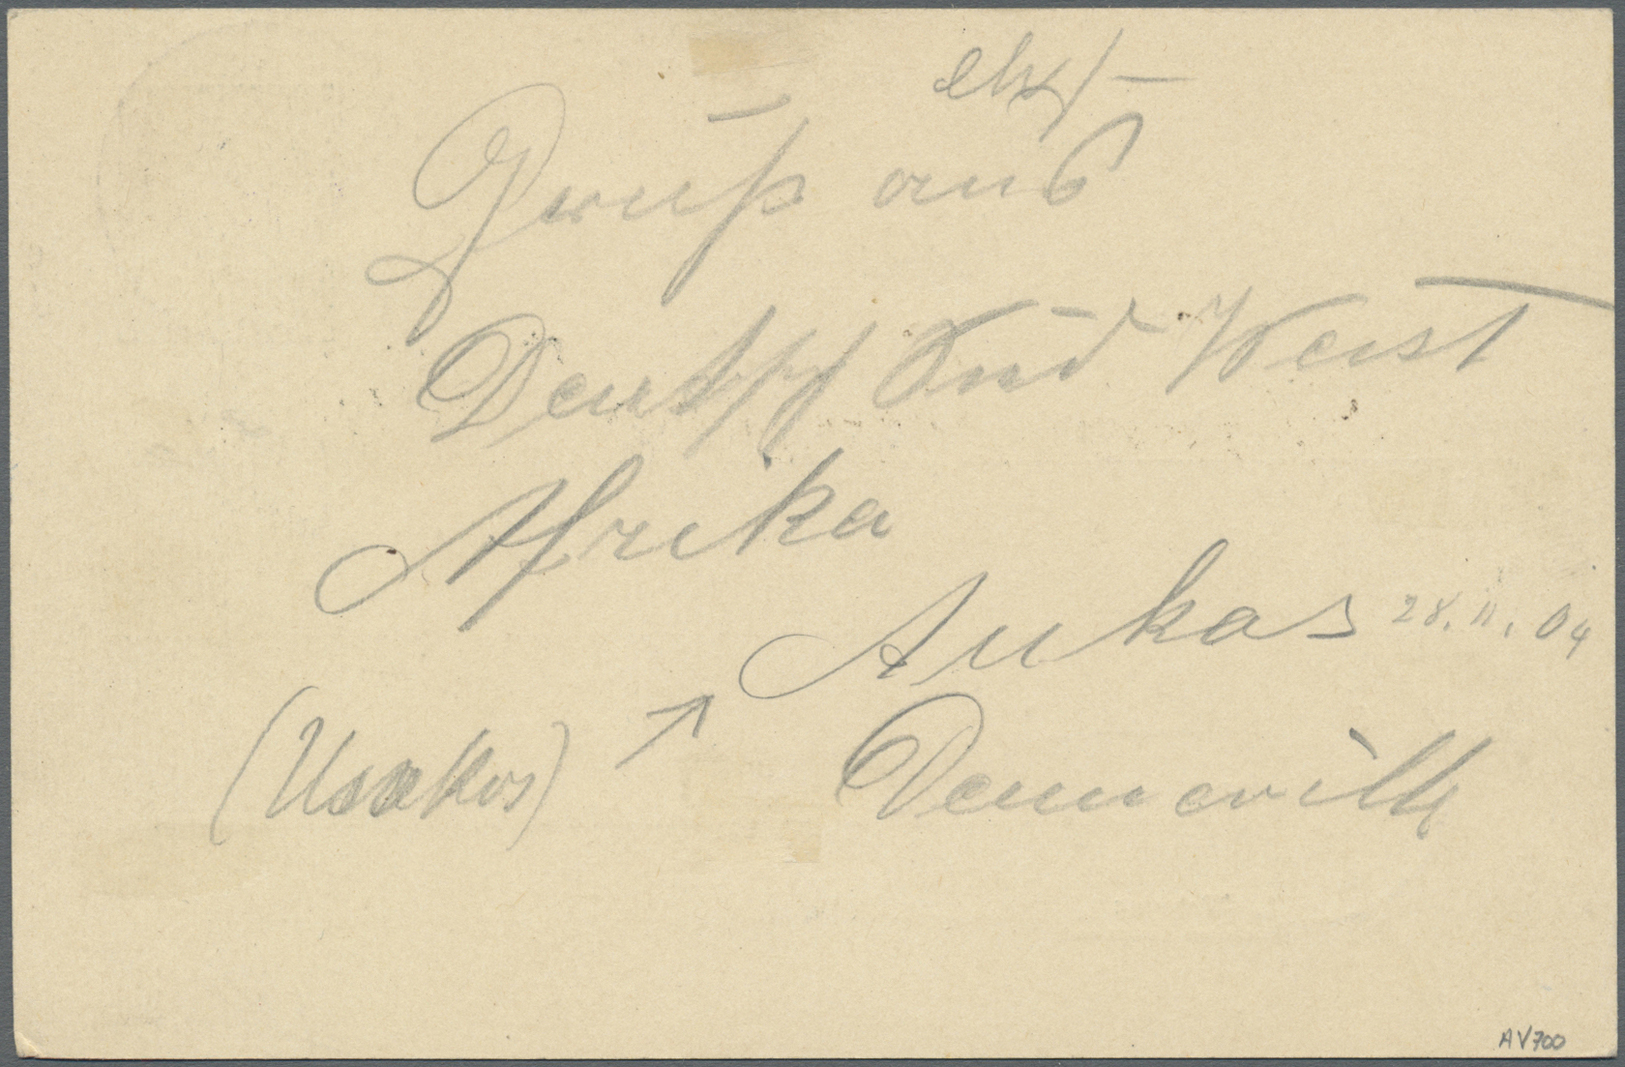 Gruß aus
Deutsch Süd West
Afrika
Aukas 28.11.04
(Usakos)
Denneville
AV700